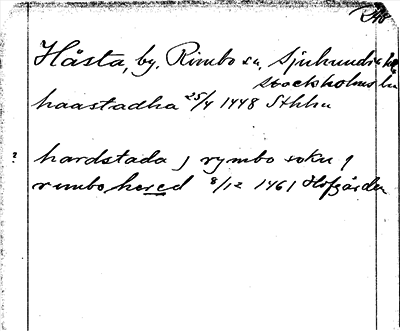 Håsta, by, Rimbo sn, Sjuhundra hd,
Stockholms län
haastadha 25/4 1448 Sthlm
? hardstada j rymbo sokn j
rimbo hered 8/12 1461 Hofgården